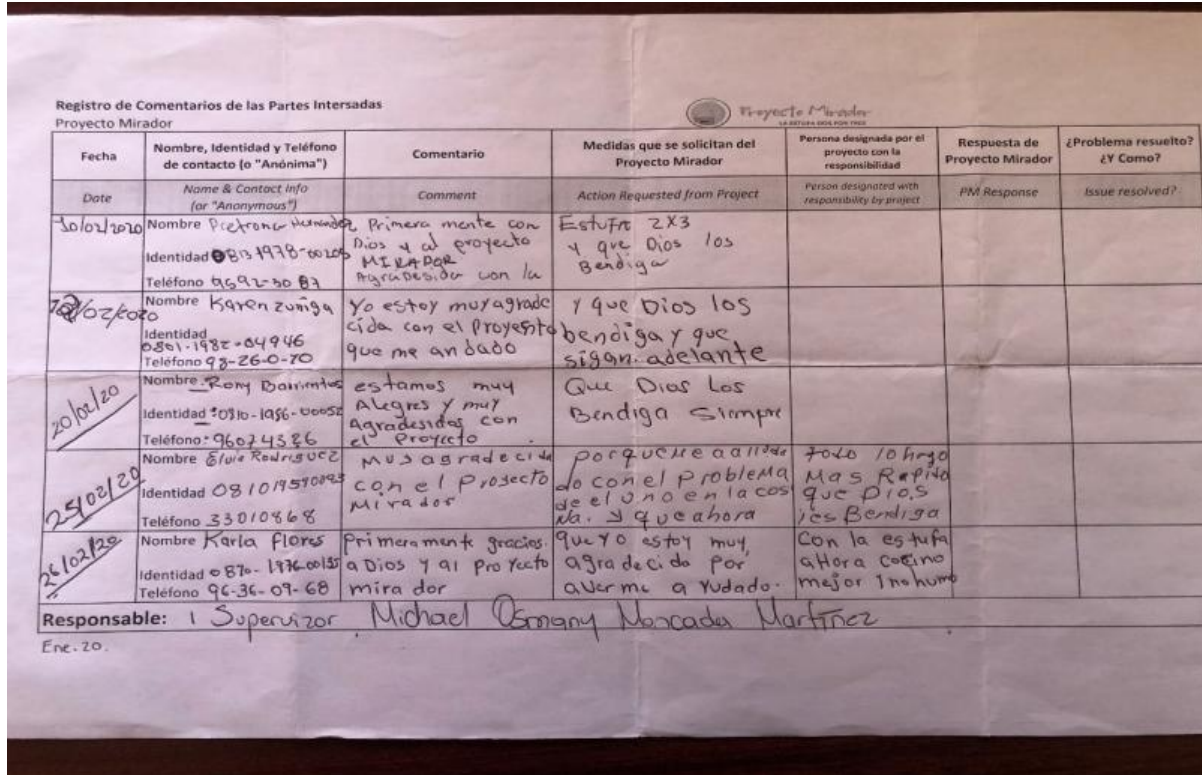 Registro de Comentarios de las Partes Intersadas
Proyecto Mirador
Proyecto Mirador
Fecha
Nombre, Identidad y Teléfono de contacto (o "Anónima")
Comentario
Medidas que se solicitan del Proyecto Mirador
Persona designada por el proyecto con la responsibilidad
Respuesta de Proyecto Mirador
¿Problema resuelto? ¿Y Como?
Date
Name & Contact Info (or "Anonymous")
Comment
Action Requested from Project
Person designated with responsibility by project
PM Response
Issue resolved?
10/02/2020
Nombre Hernandez
Identidad 0813 1978-00205
Teléfono 9592-30 87
Primera mente con
Dios y al proyecto
MIRADOR
Agradesida con la
Estufa 2X3
y que Dios los
Bendiga
/02/2020
Nombre Karen zuñiga
Identidad
0801-1982-04946
Teléfono 98-26-0-70
Yo estoy muy agrade
cida con el Proyecto
que me an dado
y que Dios los
bendiga y que
sigan adelante
20/02/20
Nombre Rony Barrientos
Identidad: 0810-1986-00052
Teléfono: 96074326
estamos muy
Alegres y muy
Agradesidos con
el Proyecto
Que Dios Los
Bendiga Siempre
25/02/20
Nombre Elvia Rodriguez
Identidad
Teléfono 33010868
Muy agradecida
con el Proyecto
Mirador
porque me a
do con el problema
de el en la cosi
na. y que ahora
todo lo hago
Mas Rapido
que Dios
les Bendiga
26/02/20
Nombre Karla flores
Identidad
Teléfono 96-36-09-68
Primeramente gracias
a Dios y al Proyecto
mirador
que yo estoy muy
agradecido por
averme ayudado.
Con la estufa
aHora cocino
mejor
Responsable: 1 Supervizor Michael Osmany Moncada Martínez
Ene. 20.